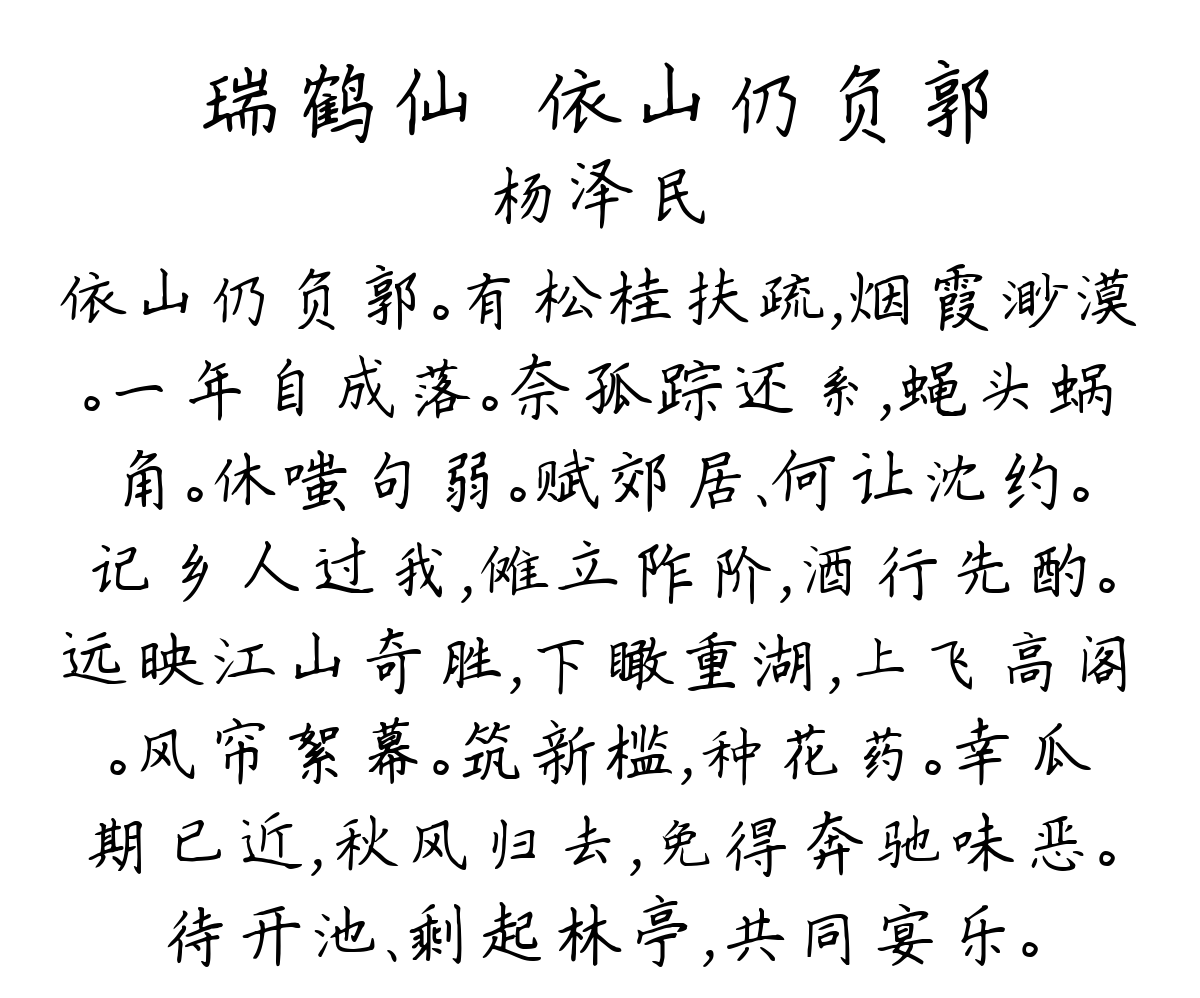 瑞鹤仙 依山仍负郭
杨泽民
依山仍负郭。有松桂扶疏,烟霞渺漠
。一年自成落。奈孤踪还系,蝇头蜗
角。休嗤句弱。赋郊居、何让沈约。
记乡人过我,傩立阼阶,酒行先酌。
远映江山奇胜,下瞰重湖,上飞高阁
。风帘絮幕。筑新槛,种花药。幸瓜
期已近,秋风归去,免得奔驰味恶。
待开池、剩起林亭,共同宴乐。